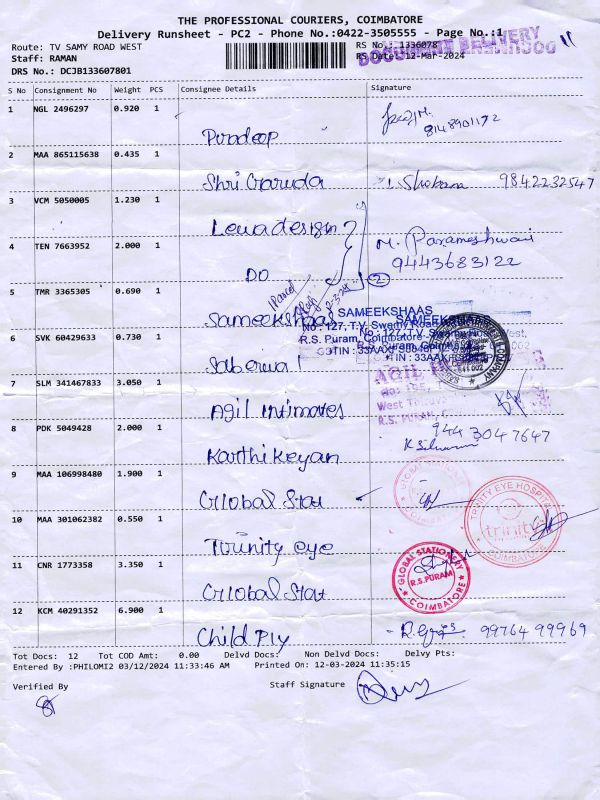 THE PROFESSIONAL COURIERS, COIMBATORE
Delivery Runsheet - PC2 - Phone No.:0422-3505555 - Page No.:1
Route: TV SAMY ROAD WEST
RS No.: 1336078
Staff: RAMAN
RS Date: 12-Mar-2024
DOCUMENT DELIVERY
DRS No.: DCJB133607801
S No Consignment No Weight PCS Consignee Details Signature
1 NGL 2496297 0.920 1
Pradeep 8148901172
2 MAA 865115638 0.435 1
Shri Garuda Shobana 9842232547
3 VCM 5050005 1.230 1
Lewa design
M. Parameshwari
4 TEN 7663952 2.000 1
9443683122
DO
2
1 Parcel
5 TMR 3365305 0.690 1
Sameekshaas
SAMEEKSHAAS
No.: 127, T.V. Swamy Road West,
R.S. Puram, Coimbatore
GSTIN : 33AAXF
SAMEEKSHAAS
No.: 127, T.V. Swamy Road West,
R.S. Puram, Coimbatore
GSTIN : 33AAXF
6 SVK 60429633 0.730 1
Saberwal
AGIL
7 SLM 341467833 3.050 1
R.S. PURAM,
Agil intimates
8 PDK 5049428 2.000 1
9443047647
Karthikeyan
9 MAA 106998480 1.900 1
Global Star
TRINITY EYE HOSPITAL
trinity
COIMBATORE
10 MAA 301062382 0.550 1
Trinity eye
11 CNR 1773358 3.350 1
Global Star
GLOBAL STATIONERY
R.S. PURAM
COIMBATORE
12 KCM 40291352 6.900 1
Child Ply 99764 99969
Tot Docs: 12 Tot COD Amt: 0.00 Delvd Docs: Non Delvd Docs: Delvy Pts:
Entered By :PHILOMI2 03/12/2024 11:33:46 AM Printed On: 12-03-2024 11:35:15
Verified By Staff Signature